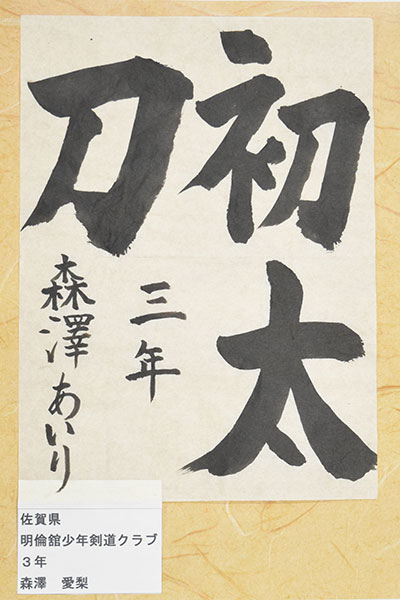 初太
刀
三年
森澤あいり
佐賀県
明倫舘少年剣道クラブ
３年
森澤　愛梨